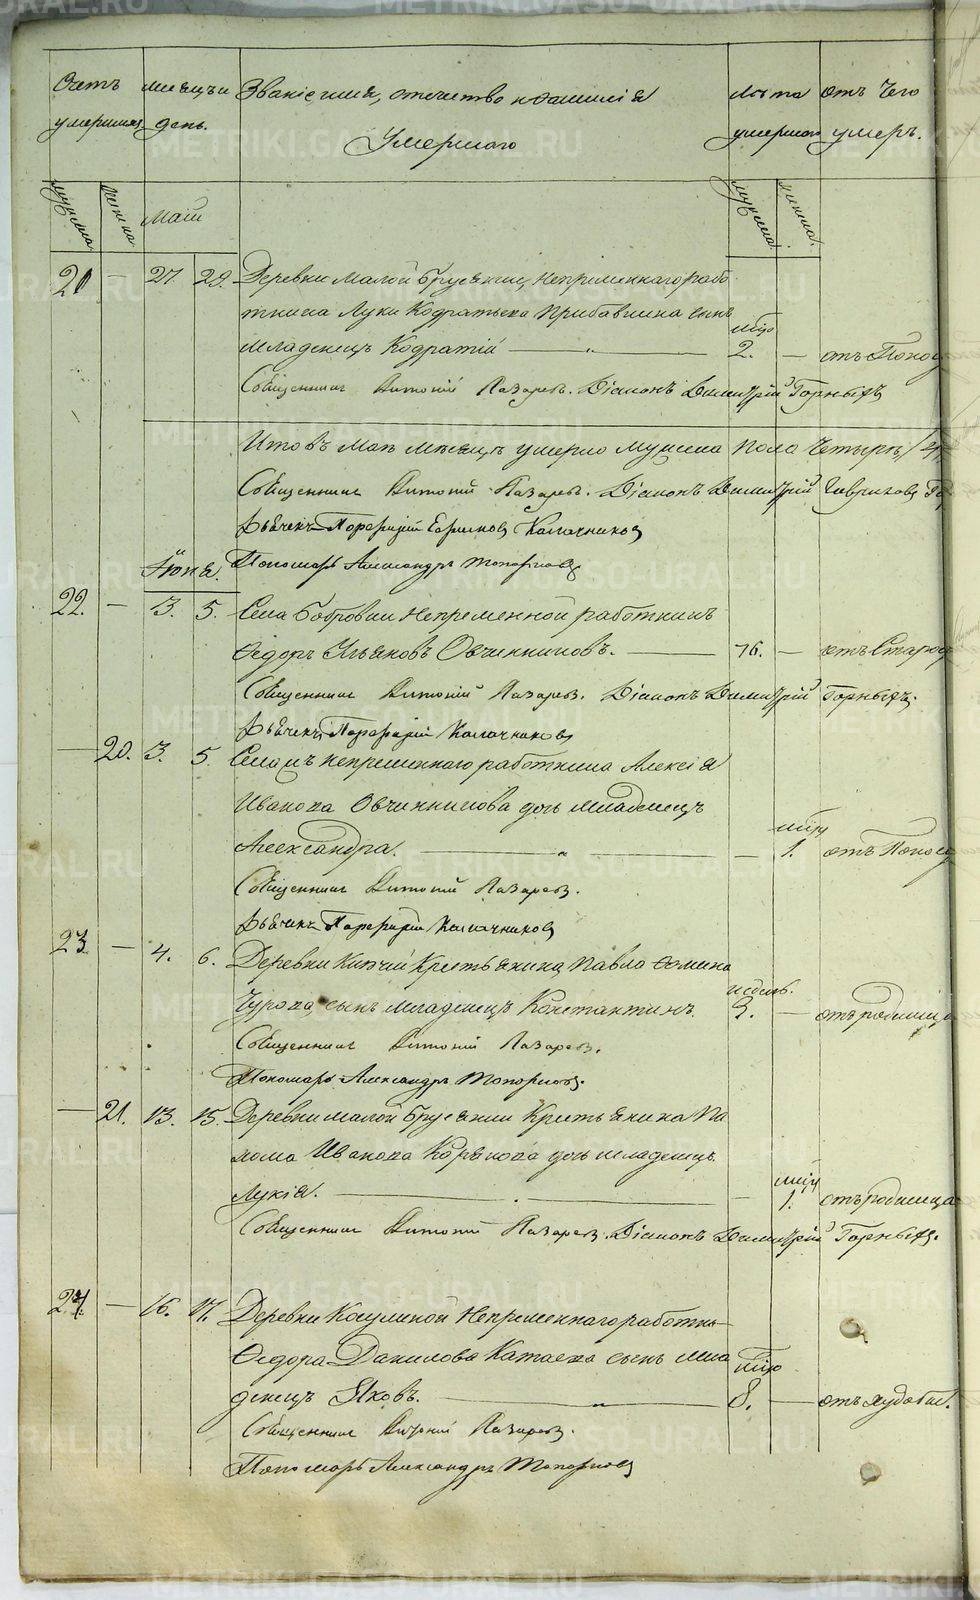 Счетъ умершихъ
мѣсяцъ и день.
Званіе имя, отечество и фамилія
Умершаго
лѣта умершаго
отъ Чего умеръ.
мужеска
женска
Маій
мужеска
женска
21 — 27. 29. Деревни Малой Брусянки, Непременнаго рабо-
тника Луки Кодратьева Прибавкина сынъ
младенецъ Кодратій — 2. — отъ Поноса
Священникъ Антоній Лазаревъ. Діаконъ Димитрій Горныхъ
Итовъ Маѣ мѣсяцѣ умерло мужска пола Четыре /4/
Священникъ Антоній Лазаревъ. Діаконъ Димитрій
Дьячекъ Порфирій Калачниковъ
Іюня. Пономарь Александръ Топорковъ
22. — 3. 5. Села Бобровки Непременной работникъ
Ѳедоръ Ульяновъ Овчинниковъ. — 76. — отъ Старос
Священникъ Антоній Лазаревъ. Діаконъ Димитрій Горныхъ.
Дьячекъ Порфирій Калачниковъ
— 20. 3. 5. Селамъ непременнаго работника Алексѣя
Иванова Овчинникова дочь младенецъ
Александра. — 1. отъ Поноса
Священникъ Антоній Лазаревъ.
Дьячекъ Порфирій Калачниковъ
23 — 4. 6. Деревни Ключи Крестьянина Павла Ѳомина
недѣль.
Чурова сынъ младенецъ Константинъ. 3. — отъ родимца
Священникъ Антоній Лазаревъ.
Пономарь Александръ Топорковъ.
— 21. 13. 15. Деревни малой Брусянки Крестьянина Па
хома Иванова Корякова дочь младенецъ
Лукія. — 1. отъ родимца
Священникъ Антоній Лазаревъ. Діаконъ Димитрій Горныхъ.
24. — 16. 17. Деревни Каулиной Непременнаго работни
Ѳедора Данилова Катаева сынъ мла
денецъ Яковъ. — 8. — отъ худобы.
Священникъ Антоній Лазаревъ.
Пономарь Александръ Топорковъ
METRIKI.GASO-URAL.RU